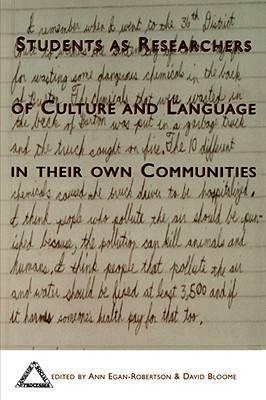 I remember when I went to the 36th District
STUDENTS AS RESEARCHERS
for wasting some dangerous chemicals in the back
of
OF CULTURE AND LANGUAGE
the back of Burton was put in a garbage truck
and the truck caught on fire. The 10 different
IN THEIR OWN COMMUNITIES
chemicals caused the truck driver to be hospitalized.
I think people who pollute the air should be pun-
ished because, the pollution can kill animals and
humans. I think people that pollute the air
and water should be fined at least 3,500 and if
it harms someones health pay for that too.
LANGUAGE & SOCIAL PROCESSES
EDITED BY ANN EGAN-ROBERTSON & DAVID BLOOME